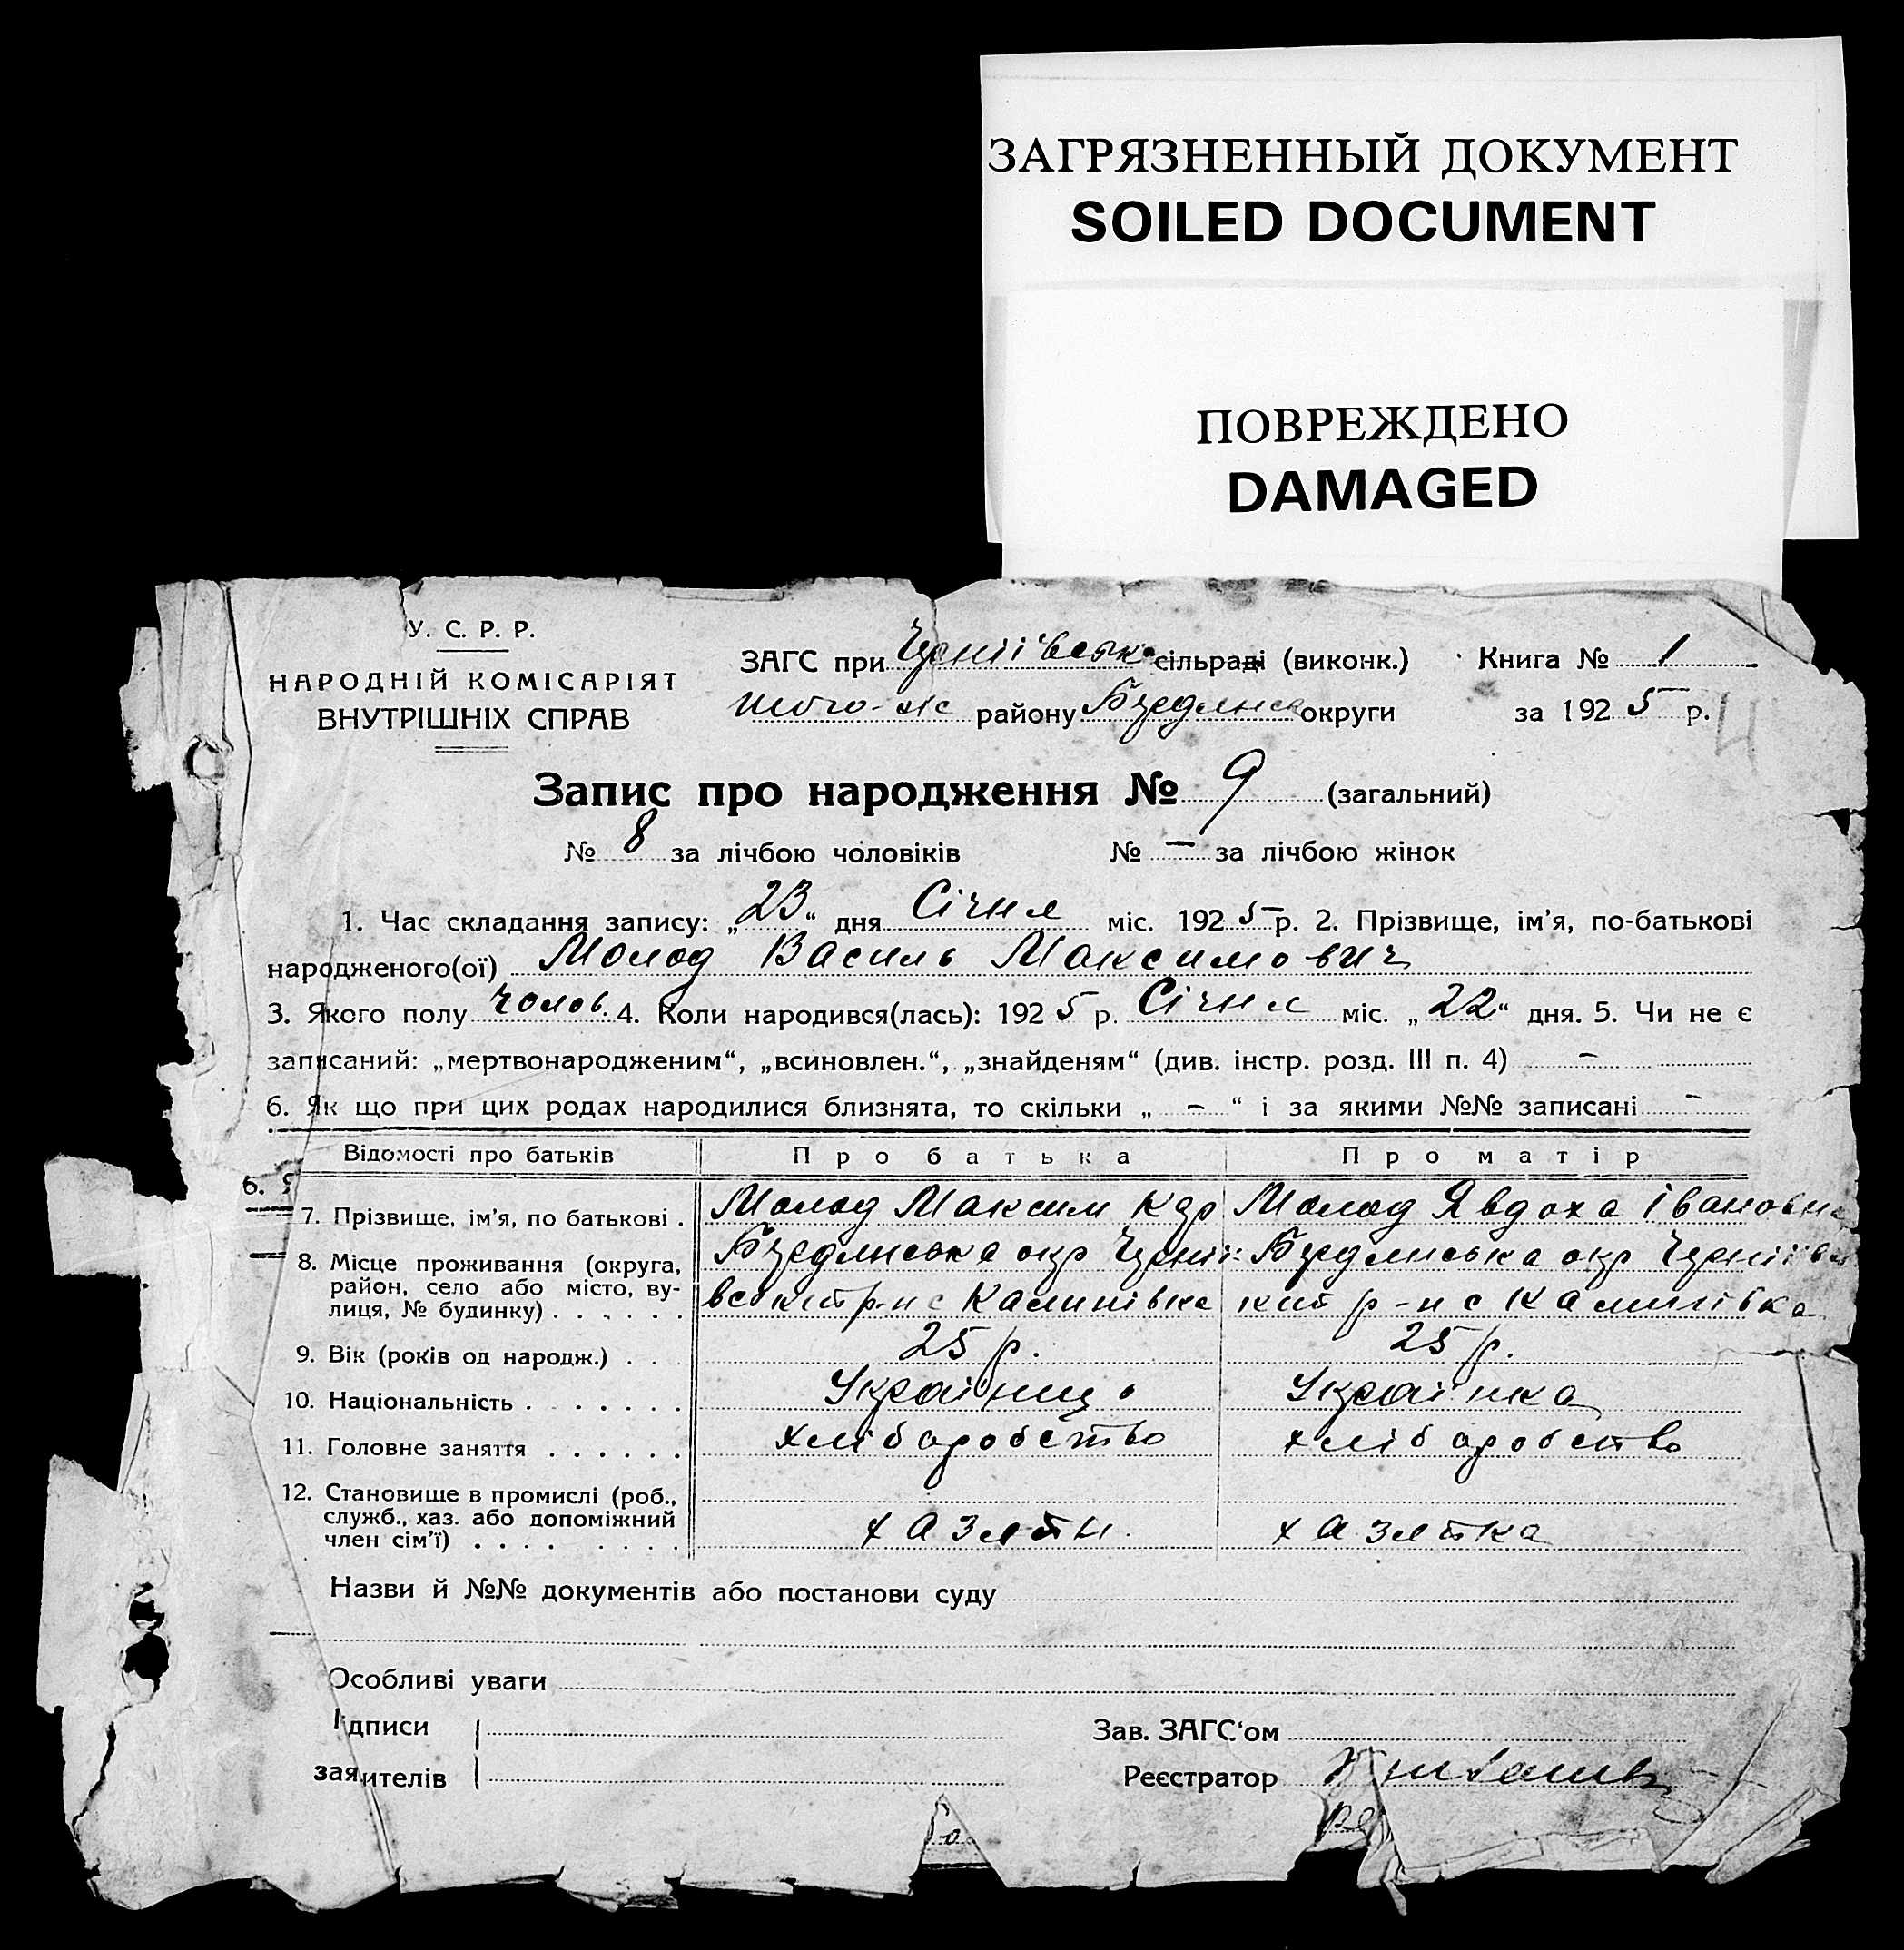 ЗАГРЯЗНЕННЫЙ ДОКУМЕНТ
SOILED DOCUMENT
ПОВРЕЖДЕНО
DAMAGED
У. С. Р. Р.
НАРОДНІЙ КОМІСАРІЯТ
ВНУТРІШНІХ СПРАВ
ЗАГС при сільраді (виконк.) Книга № 1
району округи за 1925 р. 4
Запис про народження № 9 (загальний)
№ 8 за лічбою чоловіків № – за лічбою жінок
1. Час складання запису: „23“ дня Січня міс. 1925 р. 2. Прізвище, ім'я, по-батькові
народженого(ої) Молод Василь Максимович
3. Якого полу чолов. 4. Коли народився(лась): 1925 р. Січня міс. „22“ дня. 5. Чи не є
записаний: „мертвонародженим“, „всиновлен.“, „знайденям“ (див. інстр. розд. III п. 4) –
6. Як що при цих родах народилися близнята, то скільки „ – “ і за якими №№ записані –
Відомості про батьків Про батька Про матір
6.
7. Прізвище, ім'я, по батькові . Молод Максим Молод Явдоха Івановна
8. Місце проживання (округа, район, село або місто, вулиця, № будинку) . . . . . .
Бердянська окр Бердянська окр
р-н с Калинівка р-н с Калинівка
9. Вік (років од народж.) . . 25 р. 25 р.
10. Національність . . . . . . . Українць Українка
11. Головне заняття . . . . . . хліборобство хліборобство
12. Становище в промислі (роб.,
служб., хаз. або допоміжний
член сім'ї) . . . . . . . . хазятн. хазятка
Назви й №№ документів або постанови суду
Особливі уваги
ідписи
заявителів
Зав. ЗАГС'ом
Реєстратор